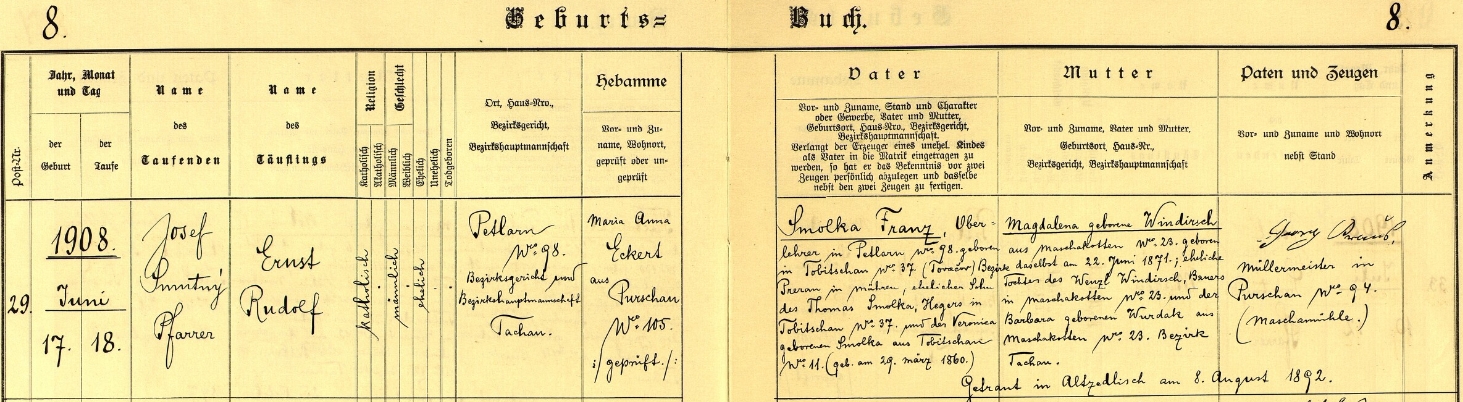 8.
Geburts=
Buch.
8.
Post-Nr.
Jahr, Monat
und Tag
der
Geburt
der
Taufe
Name
des
Taufenden
Name
des
Täuflings
Religion
Katholisch
Akatholisch
Geschlecht
Männlich
Weiblich
Ehelich
Unehelich
Todgeboren
Ort, Haus-Nro.,
Bezirksgericht,
Bezirkshauptmannschaft
Hebamme
Vor- und Zu-
name, Wohnort,
geprüft oder un-
geprüft
Vater
Vor- und Zuname, Stand und Charakter
oder Gewerbe, Vater und Mutter,
Geburtsort, Haus-Nro., Bezirksgericht,
Bezirkshauptmannschaft.
Verlangt der Erzeuger eines unehel. Kindes
als Vater in die Matrik eingetragen zu
werden, so hat er das Bekenntnis vor zwei
Zeugen persönlich abzulegen und dasselbe
nebst den zwei Zeugen zu fertigen.
Mutter
Vor- und Zuname, Vater und Mutter,
Geburtsort, Haus-Nr.,
Bezirksgericht, Bezirkshauptmannschaft
Paten und Zeugen
Vor- und Zuname und Wohnort
nebst Stand
Anmerkung
29.
1908.
Juni
17. 18.
Josef
Pfarrer
Ernst
Rudolf
katholisch
männlich
ehelich
Petlarn
Nro. 98.
Bezirksgericht und
Bezirkshauptmannschaft
Tachau.
Maria Anna
Eckert
aus
Purschau
Nro. 105.
:/geprüft./:
Smolka Franz, Ober-
lehrer in Petlarn Nro. 98. geboren
in Tobitschau Nro. 37 (Tovačov) Bezirk
Preran in Mähren, ehelicher Sohn
des Thomas Smolka, Hegers in
Tobitschau Nro. 37. und der Veronica
geborenen Smolka aus Tobitschau
Nro. 11. (geb. am 29. März 1860.)
Magdalena geborene Windirsch
aus Maschakotten Nro. 23. geboren
daselbst am 22. Juni 1871.; eheliche
Tochter des Wenzl Windirsch, Bauers
in Maschakotten Nro. 23. und der
Barbara geborenen Wurdak aus
Maschakotten Nro. 23. Bezirk
Tachau.
Getraut in Altzedlisch am 8. August 1892.
Georg
Müllermeister in
Purschau Nro. 94.
(Maschamühle.)